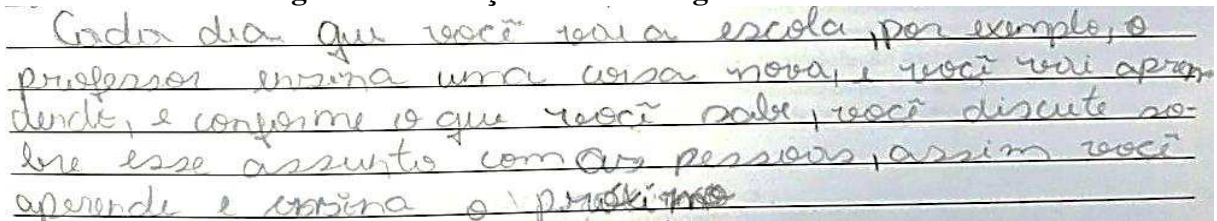 Cada dia que você vai a escola, por exemplo, o
professor ensina uma coisa nova, e você vai apren
dendo, e conforme o que você sabe, você discute so-
bre esse assunto com as pessoas, assim você
aprende e ensina o próximo